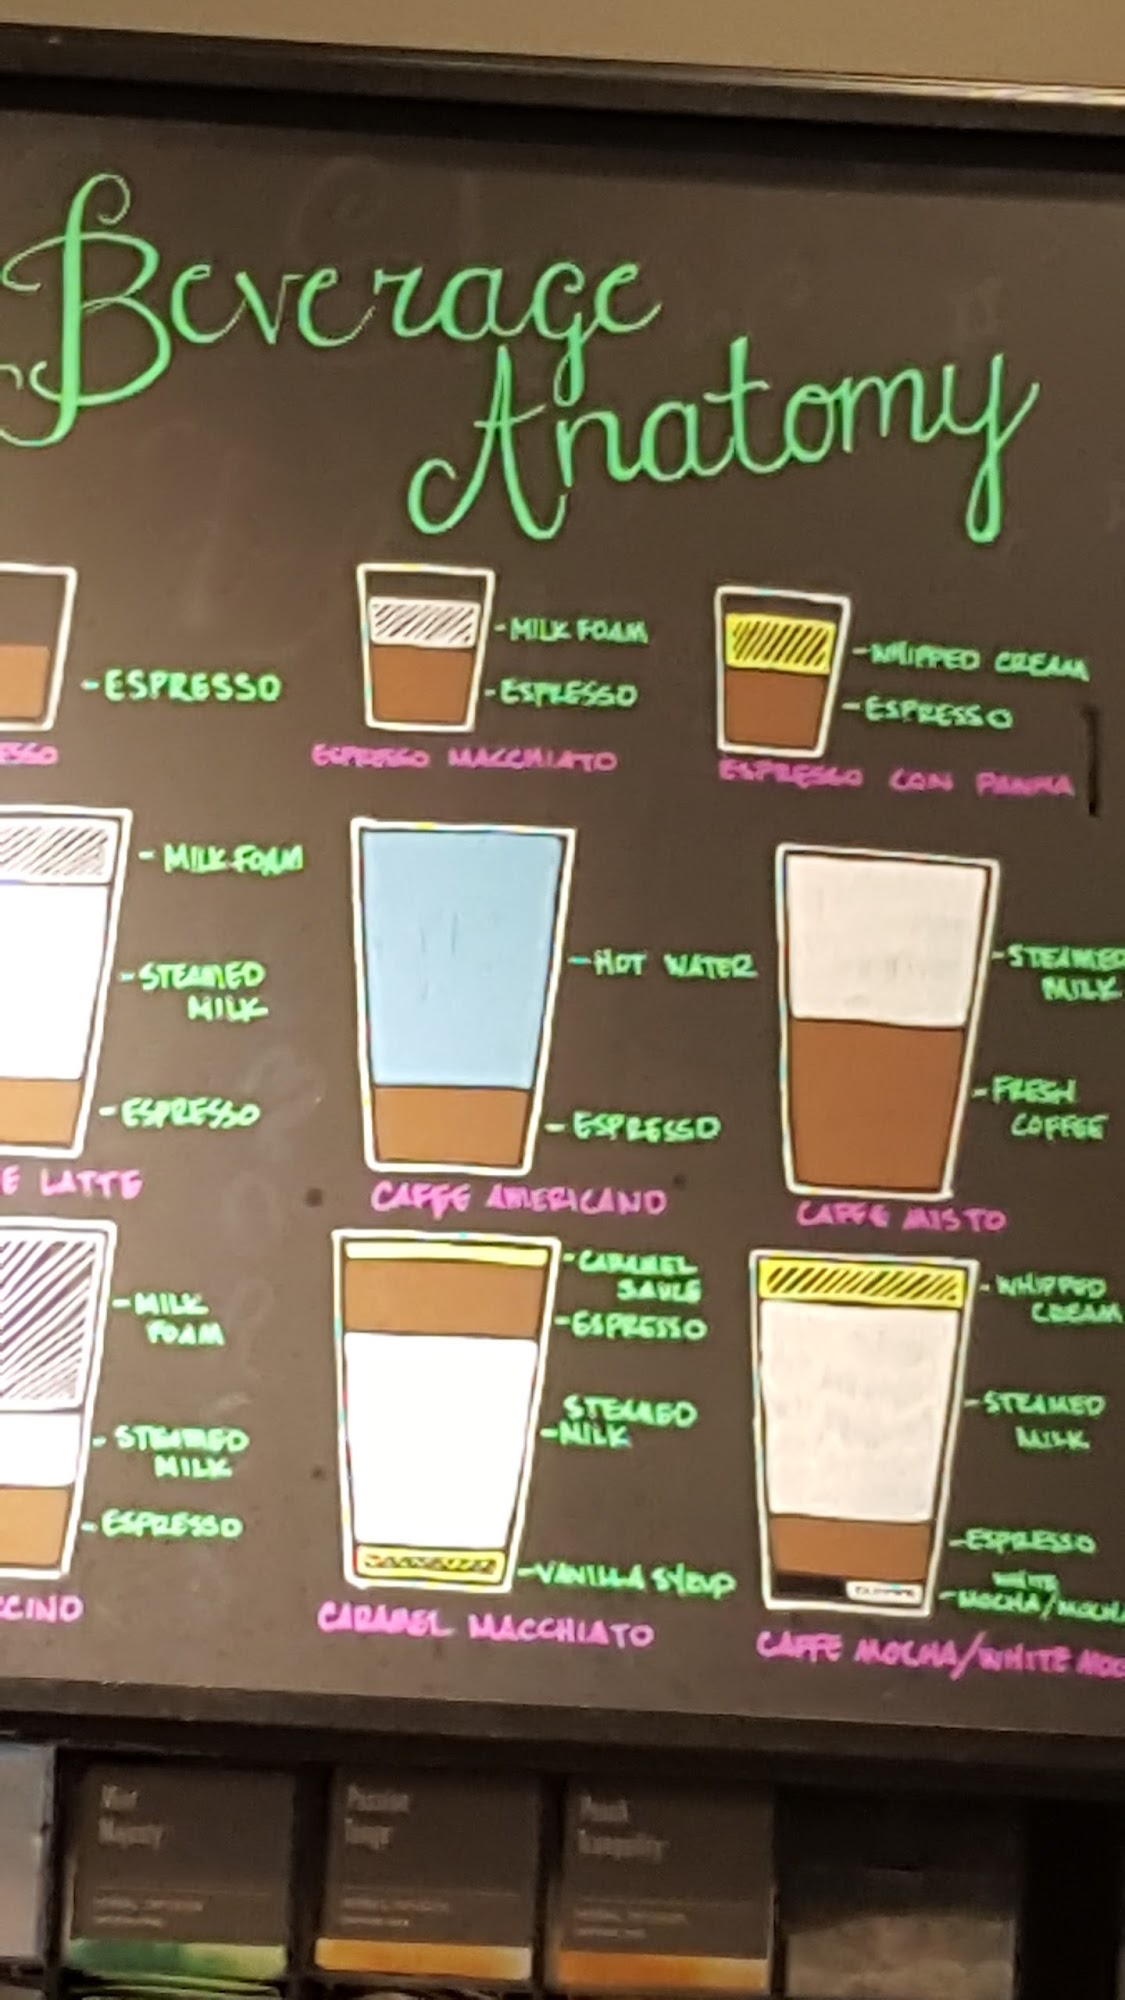 Beverage
Anatomy
-ESPRESSO
-MILK FOAM
-ESPRESSO
-WHIPPED CREAM
-ESPRESSO
ESSO
ESPRESSO MACCHIATO
ESPRESSO CON PANNA
-MILK FOAM
-STEAMED
MILK
-ESPRESSO
-HOT WATER
-ESPRESSO
-STEAMED
MILK
-FRESH
COFFEE
E LATTE
CAFFE AMERICANO
CAFFE MISTO
-MILK
FOAM
-STEAMED
MILK
-ESPRESSO
-CARAMEL
SAUCE
-ESPRESSO
STEAMED
-MILK
-VANILLA SYRUP
-WHIPPED
CREAM
-STEAMED
MILK
-ESPRESSO
WHITE
-MOCHA/MOCHA
CCINO
CARAMEL MACCHIATO
CAFFE MOCHA/WHITE MOC
Mint
Majesty
Passion
Tango
Peach
Tranquility